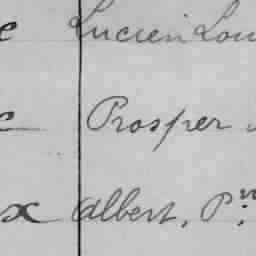 e Lucien Lou
c Prosper
x Albert, Pre